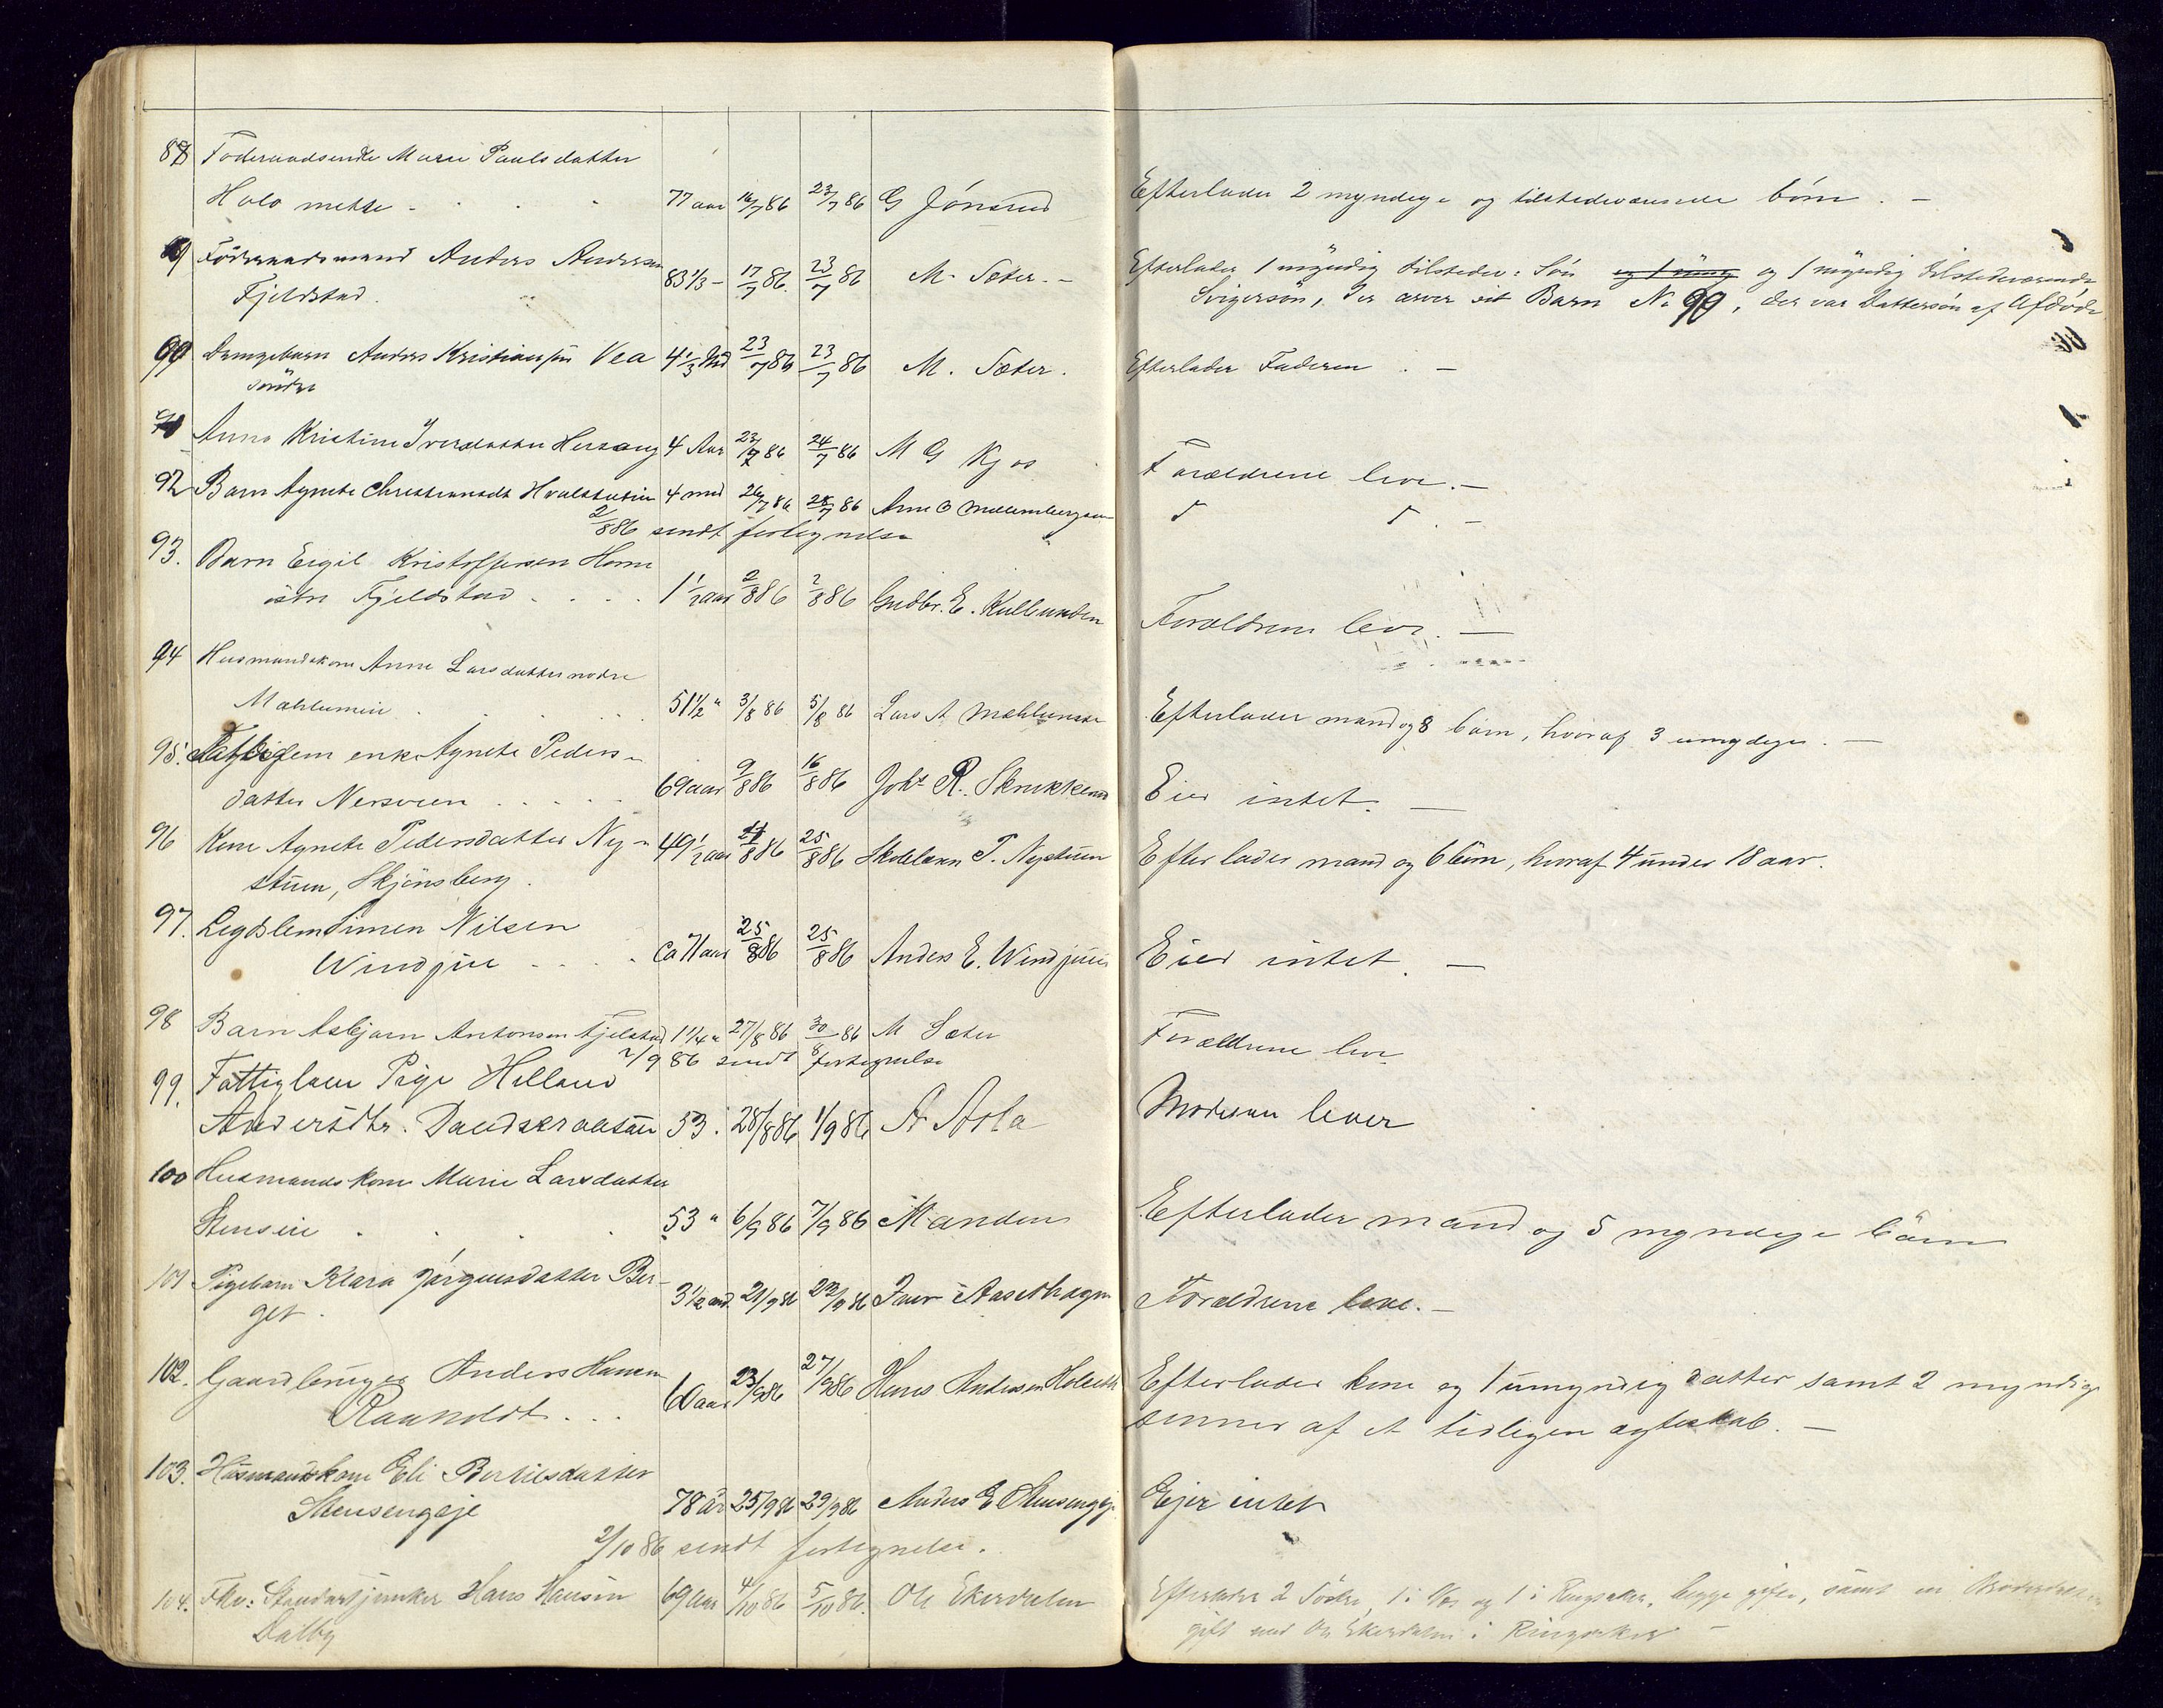 88 Föderaadsenke Marie Paulsdatter
Holo mette - 77 aar 16/7 86 23/7 86 G Jönsrud Efterlader 2 myndige og tilstedeværende börn. -
89 Föderaadsmand Anders Andersen
Fjeldstad. 83 1/3 - 17/7 86. 23/7 86 M. Sæter. - Efterlader 1 myndig tilstedev: Sön og 1 umy og 1 myndig tilstedeværende
Svigersön, der arver sit Barn No 90, der var Dattersön af Afdöde
90 Drengebarn Anders Kristiansen Vea 4 1/3 Md 23/7 86 23/7 86 M. Sæter. Efterlader Faderen. -
söndre
91 Anna Kristine Iversdatter 4 Aar 23/7 86 24/7 86 M G Kjos Forældrene leve. -
92 Barn Agnete Christiansdt 4 md 26/7 86 28/7 86 Arne O
2/8 86 sendt fortegnelse
93. Barn Eigil Kristoffersen Horne
östre Fjeldstad 1 1/2 aar 2/8 86 2/8 86 Gudbr. E. Kullunden Forældrene leve. -
94 Husmandskone Anne Larsdatter nodre
Mæhlumeie 51 1/2 " 3/8 86 5/8 86 Lars A Mæhlumeie Efterlader mand og 8 börn, hvoraf 3 umyndige. -
95. enke Agnete Peders-
datter Nersveen 69 aar 9/8 86 16/8 86 Johs R. Skrukkerud Eier intet. -
96 Kone Agnete Pedersdatter Ny-
stuen, Skjönsberg. 49 1/2 aar 21/8 86 25/8 86 Skolelærer P. Nystuen Efterlader mand og 6 börn, hvoraf 4 under 18 aar.
97. Legdslem Simen Nilsen
Windjue ca 71 aar 25/8 86 25/8 86 Anders E. Windjue Eier intet. -
98 Barn Asbjørn Antonsen Fjelstad 1 1/4 " 27/8 86 30/8 86 M Sæter Forældrene leve
2/9 86 sendt fortegnelse
99. Fattiglem Pige Helland
Andersdtr. 53. 28/8 86 1/9 86 A Asla Moderen lever
100 Husmandskone Marie Larsdatter
Stenseie 53 " 6/9 86 7/9 86 Manden Efterlader mand og 5 myndige börn
101 Pigebarn Klara Jørgensdatter Ber-
get. 3 1/2 md. 21/9 86 22/9 86 Iver Aasethagen Forældrene leve. -
102. Gaardbruger Anders Hansen
Raaholdt 60 aar 23/9 86 27/9 86 Hans Andersen Efterlader kone og 1 umyndig datter samt 2 myndige
sönner af et tidligere ægteskab. -
103. Husmandskone Eli Bertilsdatter
Stensengeje 78 år 25/9 86 29/9 86 Anders E Stensengeje Ejer intet
2/10 86 sendt fortegnelse.
104. Fhv: Standartjunker Hans Hansen 69 aar 4/10 86 5/10 86. Ole Ekerdalen Efterlader 2 Södre, 1 i Næs og 1 i Ringsaker, begge gifte, samt en Broderdatter
Dalby gift med Ole Ekerdalen i Ringsaker -